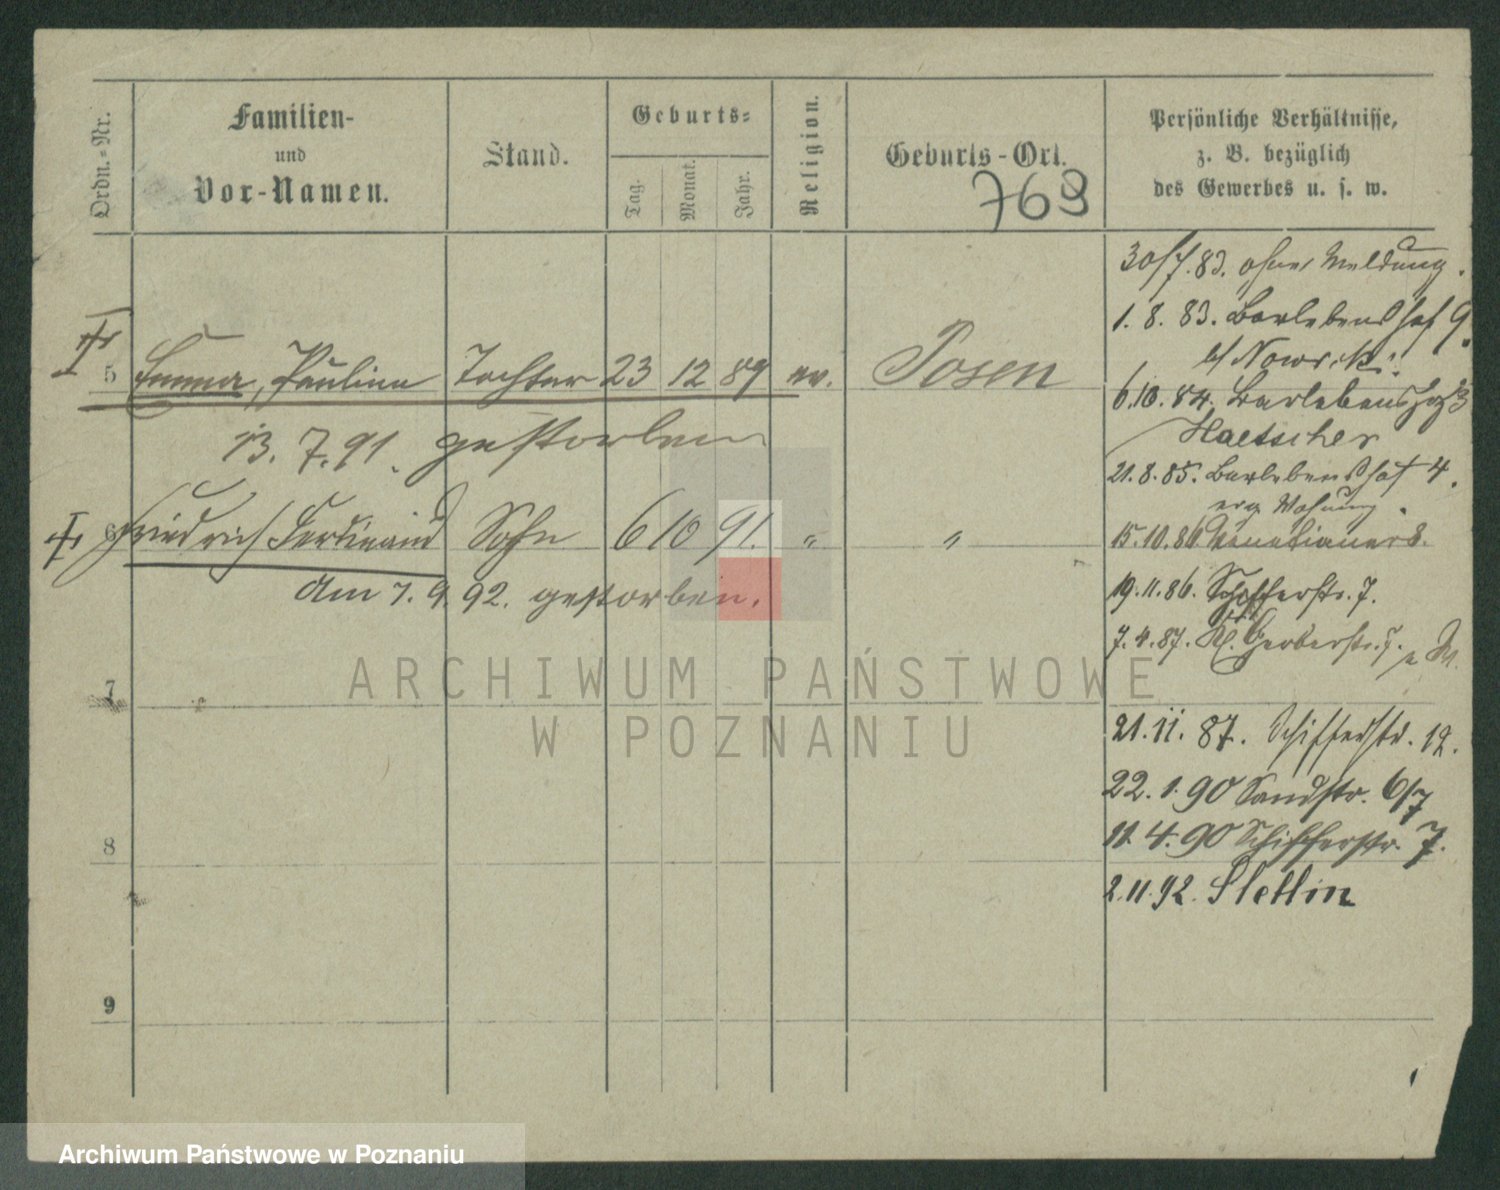 Ordn.-Nr.
Familien-
und
Vor-Namen.
Stand.
Geburts-
Tag.
Monat.
Jahr.
Religion.
Geburts-Ort.
768
Persönliche Verhältnisse,
z. B. bezüglich
des Gewerbes u. s. w.
30/7.83. ohne Meldung.
1.8.83. Barlebenshof 9.
b/ Nowicki.
5 Emma, Pauline Tochter 23 12 89 ev. Posen
6.10.84. Barlebenshof 3
Haetscher
13.7.91. gestorben
21.8.85. Barlebenshof 4.
Wohnung.
6 Friedrich Ferdinand Sohn 6 10 91. " "
15.10.86 Venetianer 8.
am 7.9.92. gestorben.
19.11.86. Schifferstr. 7.
7.4.87. Kl. Gerberstr. 7.
7
21.11.87. Schifferstr. 12.
22.1.90 Sandstr. 6/7
11.4.90 Schifferstr. 7.
8
2.11.92. Stettin
9
ARCHIWUM PAŃSTWOWE
W POZNANIU
Archiwum Państwowe w Poznaniu